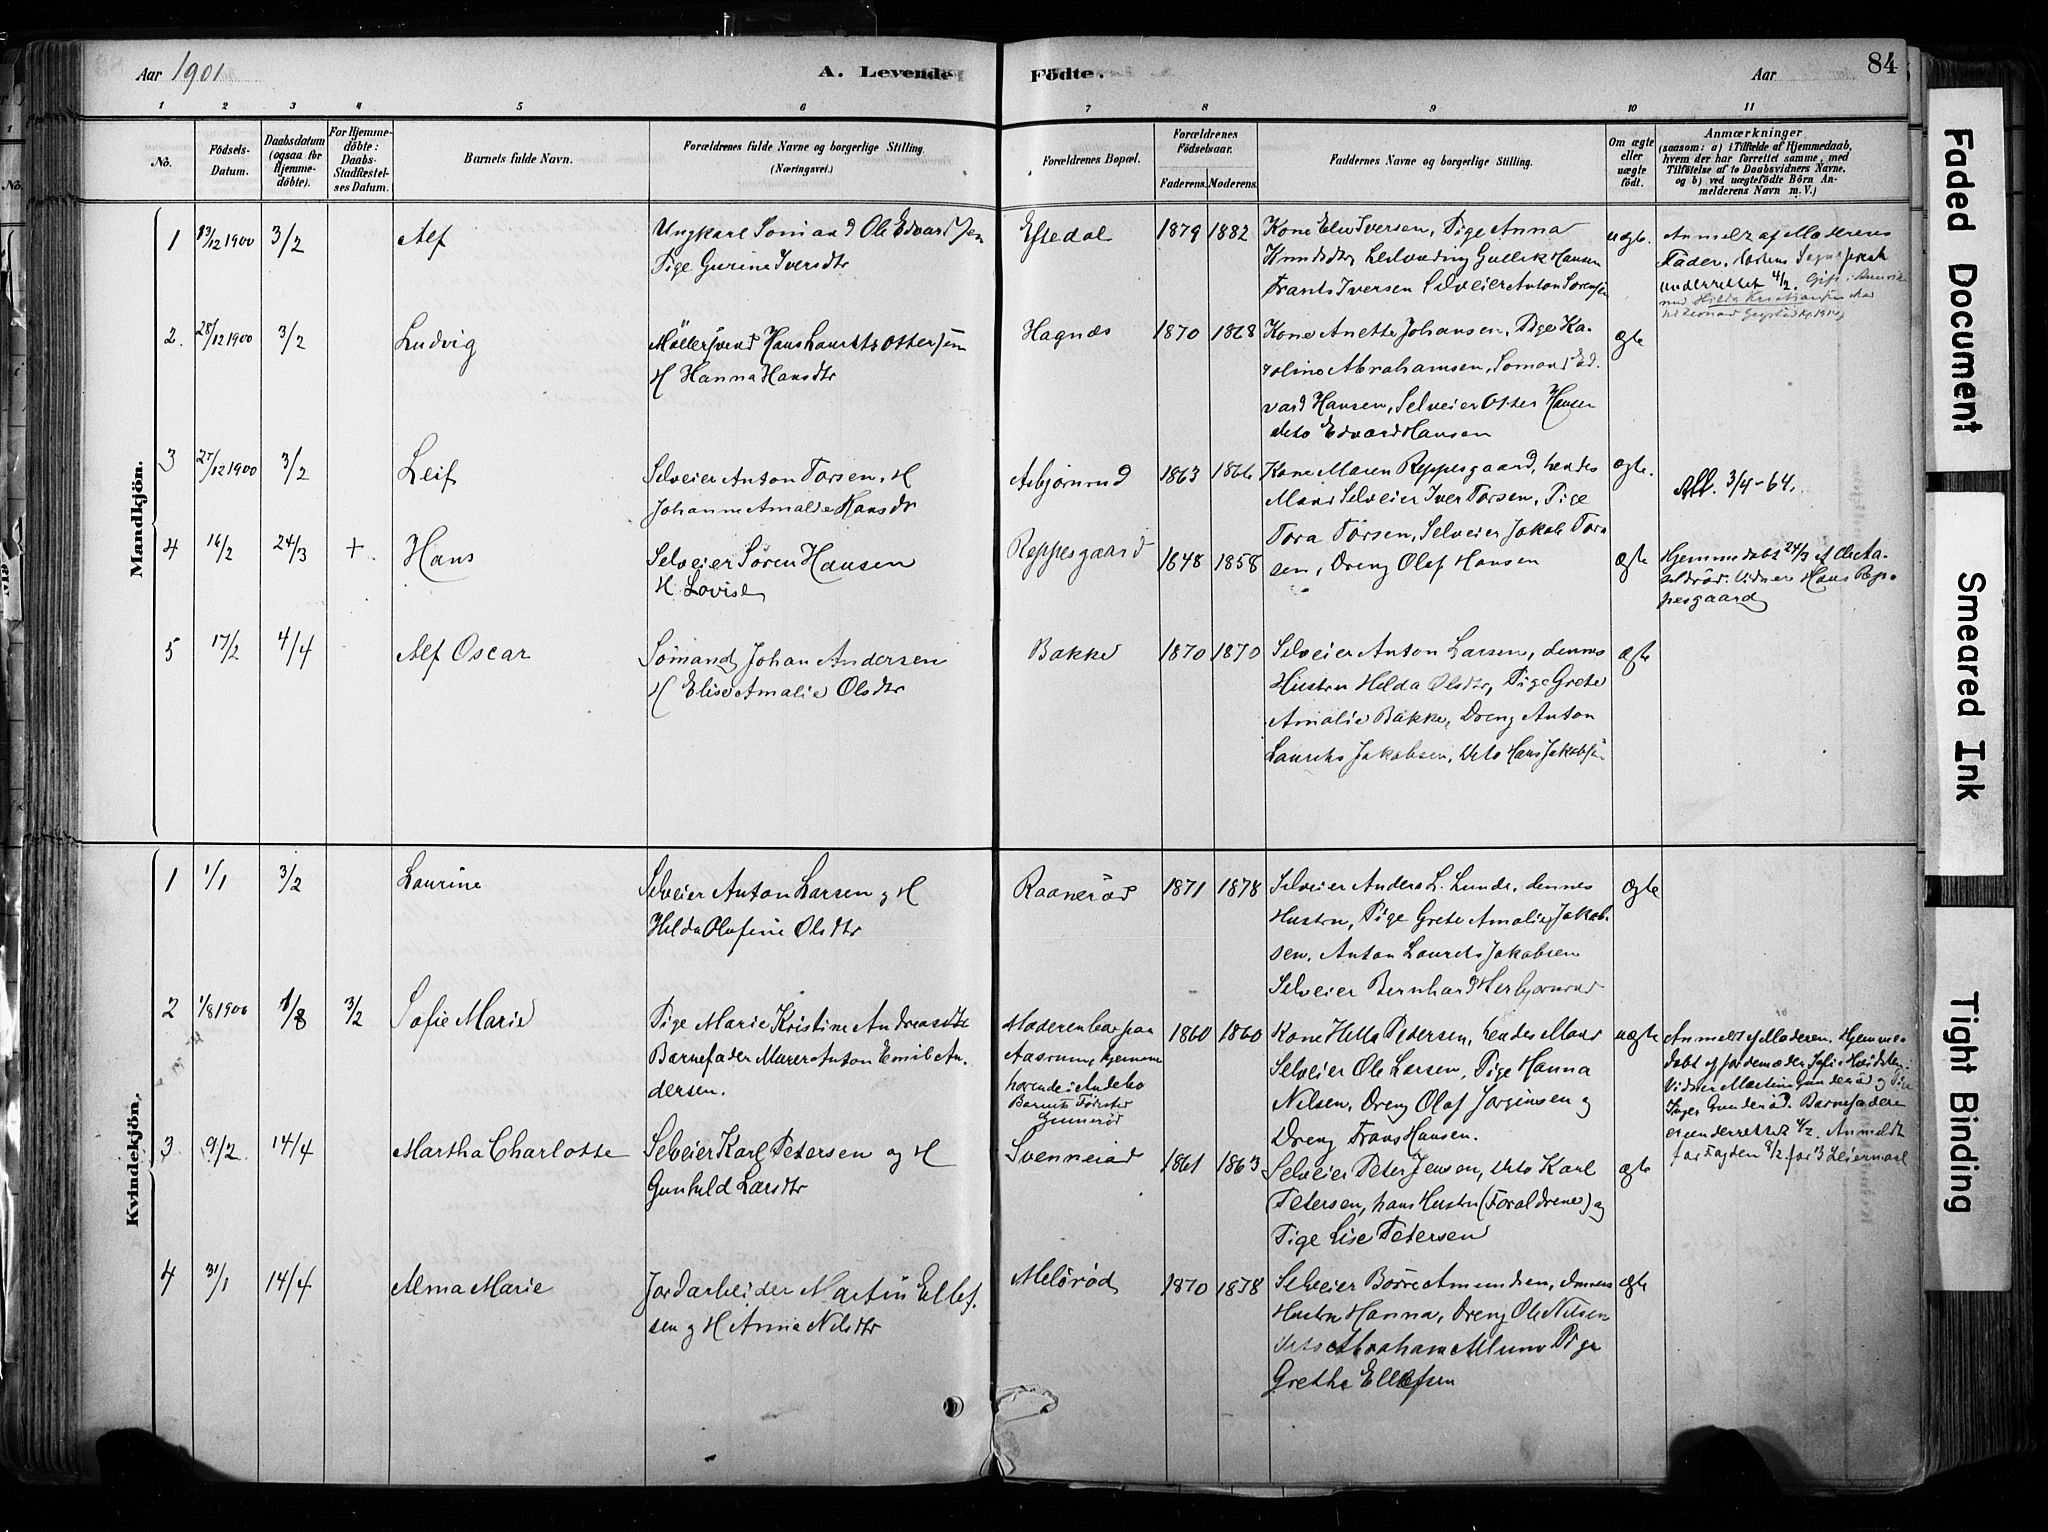 Aar 1901
A. Levende
Födte.
Aar
84
1 2 3 4 5 6 7 8 9 10 11
No.
Födsels-Datum.
Daabsdatum (ogsaa for Hjemmedöbte).
For Hjemmedöbte: Daabs-Stadfæstelses Datum.
Barnets fulde Navn.
Forældrenes fulde Navne og borgerlige Stilling.
(Næringsvei.)
Forældrenes Bopæl.
Forældrenes Födselsaar.
Faderens. Moderens.
Faddernes Navne og borgerlige Stilling.
Om ægte eller uægte født.
Anmærkninger
(saasom: a) i Tilfælde af Hjemmedaab, hvem der har forrettet samme, med Tilföielse af to Daabsvidners Navne, og b) ved uægtefödte Börn Anmelderens Navn m. V.)
Mandkjön.
1 13/12 1900 3/2 Alf
Ungkarl Sömand Ole Edvardsen
Pige Gurine Iversdtr
Eftedal 1879 1882
Kone Elev Iversen, Pige Anna
Knudsdtr, Gullik Hansen
Frants Iversen Selveier Anton Sorensen
uægte.
Anmeldt af Moderens
Fader.
underrettet 4/2.
2. 28/12 1900 3/2 Ludvig
Möllersvend Hans Laurits Ottersen
H Hanna Hansdtr
Hagnæs 1870 1868
Kone Anette Johansen, Pige Ka-
roline Abrahamsen, Sömand Ed-
vard Hansen, Selveier Otter Hansen
dito Edvard Hansen
ægte
3 27/12 1900 3/2 Leif
Selveier Anton Torsen, H
Johanne Amalie Hansdtr
Asbjørnrud 1863 1866
Kone Maren Reppesgaard, hendes
Mand Selveier Iver Torsen, Pige
Tora Torsen, Selveier Jakob Tor-
sen, Dreng Olof Hansen
ægte.
Att. 3/4-64.
4 16/2 24/3 + Hans
Selveier Sören Hansen
H Lovise
Reppesgaard 1848 1858
ægte
Hjemmedøbt 24/3 af Ole Aa-
Vidner Hans Rep-
pesgaard
5 17/2 4/4 Alf Oscar
Sömand Johan Andersen
H Elise Amalie Olsdtr
Bakke 1870 1870
Selveier Anton Larsen, dennes
Hustru Hilda Olsdtr, Pige Grete
Amalie Bakke, Dreng Anton
Laurits Jakobsen, dito Hans Jakobsen
ægte
Kvindekjön.
1 1/1 3/2 Laurine
Selveier Anton Larsen og H
Hilda Olufine Olsdtr
Raanerød 1871 1878
Selveier Anders L. Lunde, dennes
Hustru, Pige Grete Amalie Jakob-
sen, Anton Laurits Jakobsen
Selveier Bernhard Herbjørnrud
ægte
2 1/8 1900 1/8 3/2 Sofie Marie
Pige Marie Kristine Andreasdtr
Barnefader Murer Anton Emil An-
dersen.
Moderen bor paa
Aasrum, hjemme-
hørende i Andebu
Barnets
Gunnerød
1860 1860
Kone Hella Petersen, hendes Mand
Selveier Ole Larsen, Pige Hanna
Nilsen, Dreng Olaf Jørgensen og
Dreng Frans Hansen.
uægte
Anmeldt af Moderen. Hjemme-
døbt af Jordemoder Sofie
Vidner Martin Gunderød og Pige
Inger Gunderød. Barnefaderen
er underrettet 4/2. Anmeldt
for Fogden 8/2 for 3 Leiermaal
3 9/2 14/4 Martha Charlotte
Selveier Karl Petersen og H
Gunhild Larsdtr
Svenneiad 1861 1863
Selveier Peter Jensen, dito Karl
Petersen, hans Hustru (Forældrene) og
Pige Lise Petersen
ægte
4 31/1 14/4 Alma Marie
Jordarbeider Martin Ellef-
sen og H Anna Nilsdtr
Melörød 1870 1878
Selveier Börre Amundsen, dennes
Hustru Hanna, Dreng Ole Nilsen
dito Abraham Pige
Grethe Ellefsen
ægte
Faded Document
Smeared Ink
Tight Binding